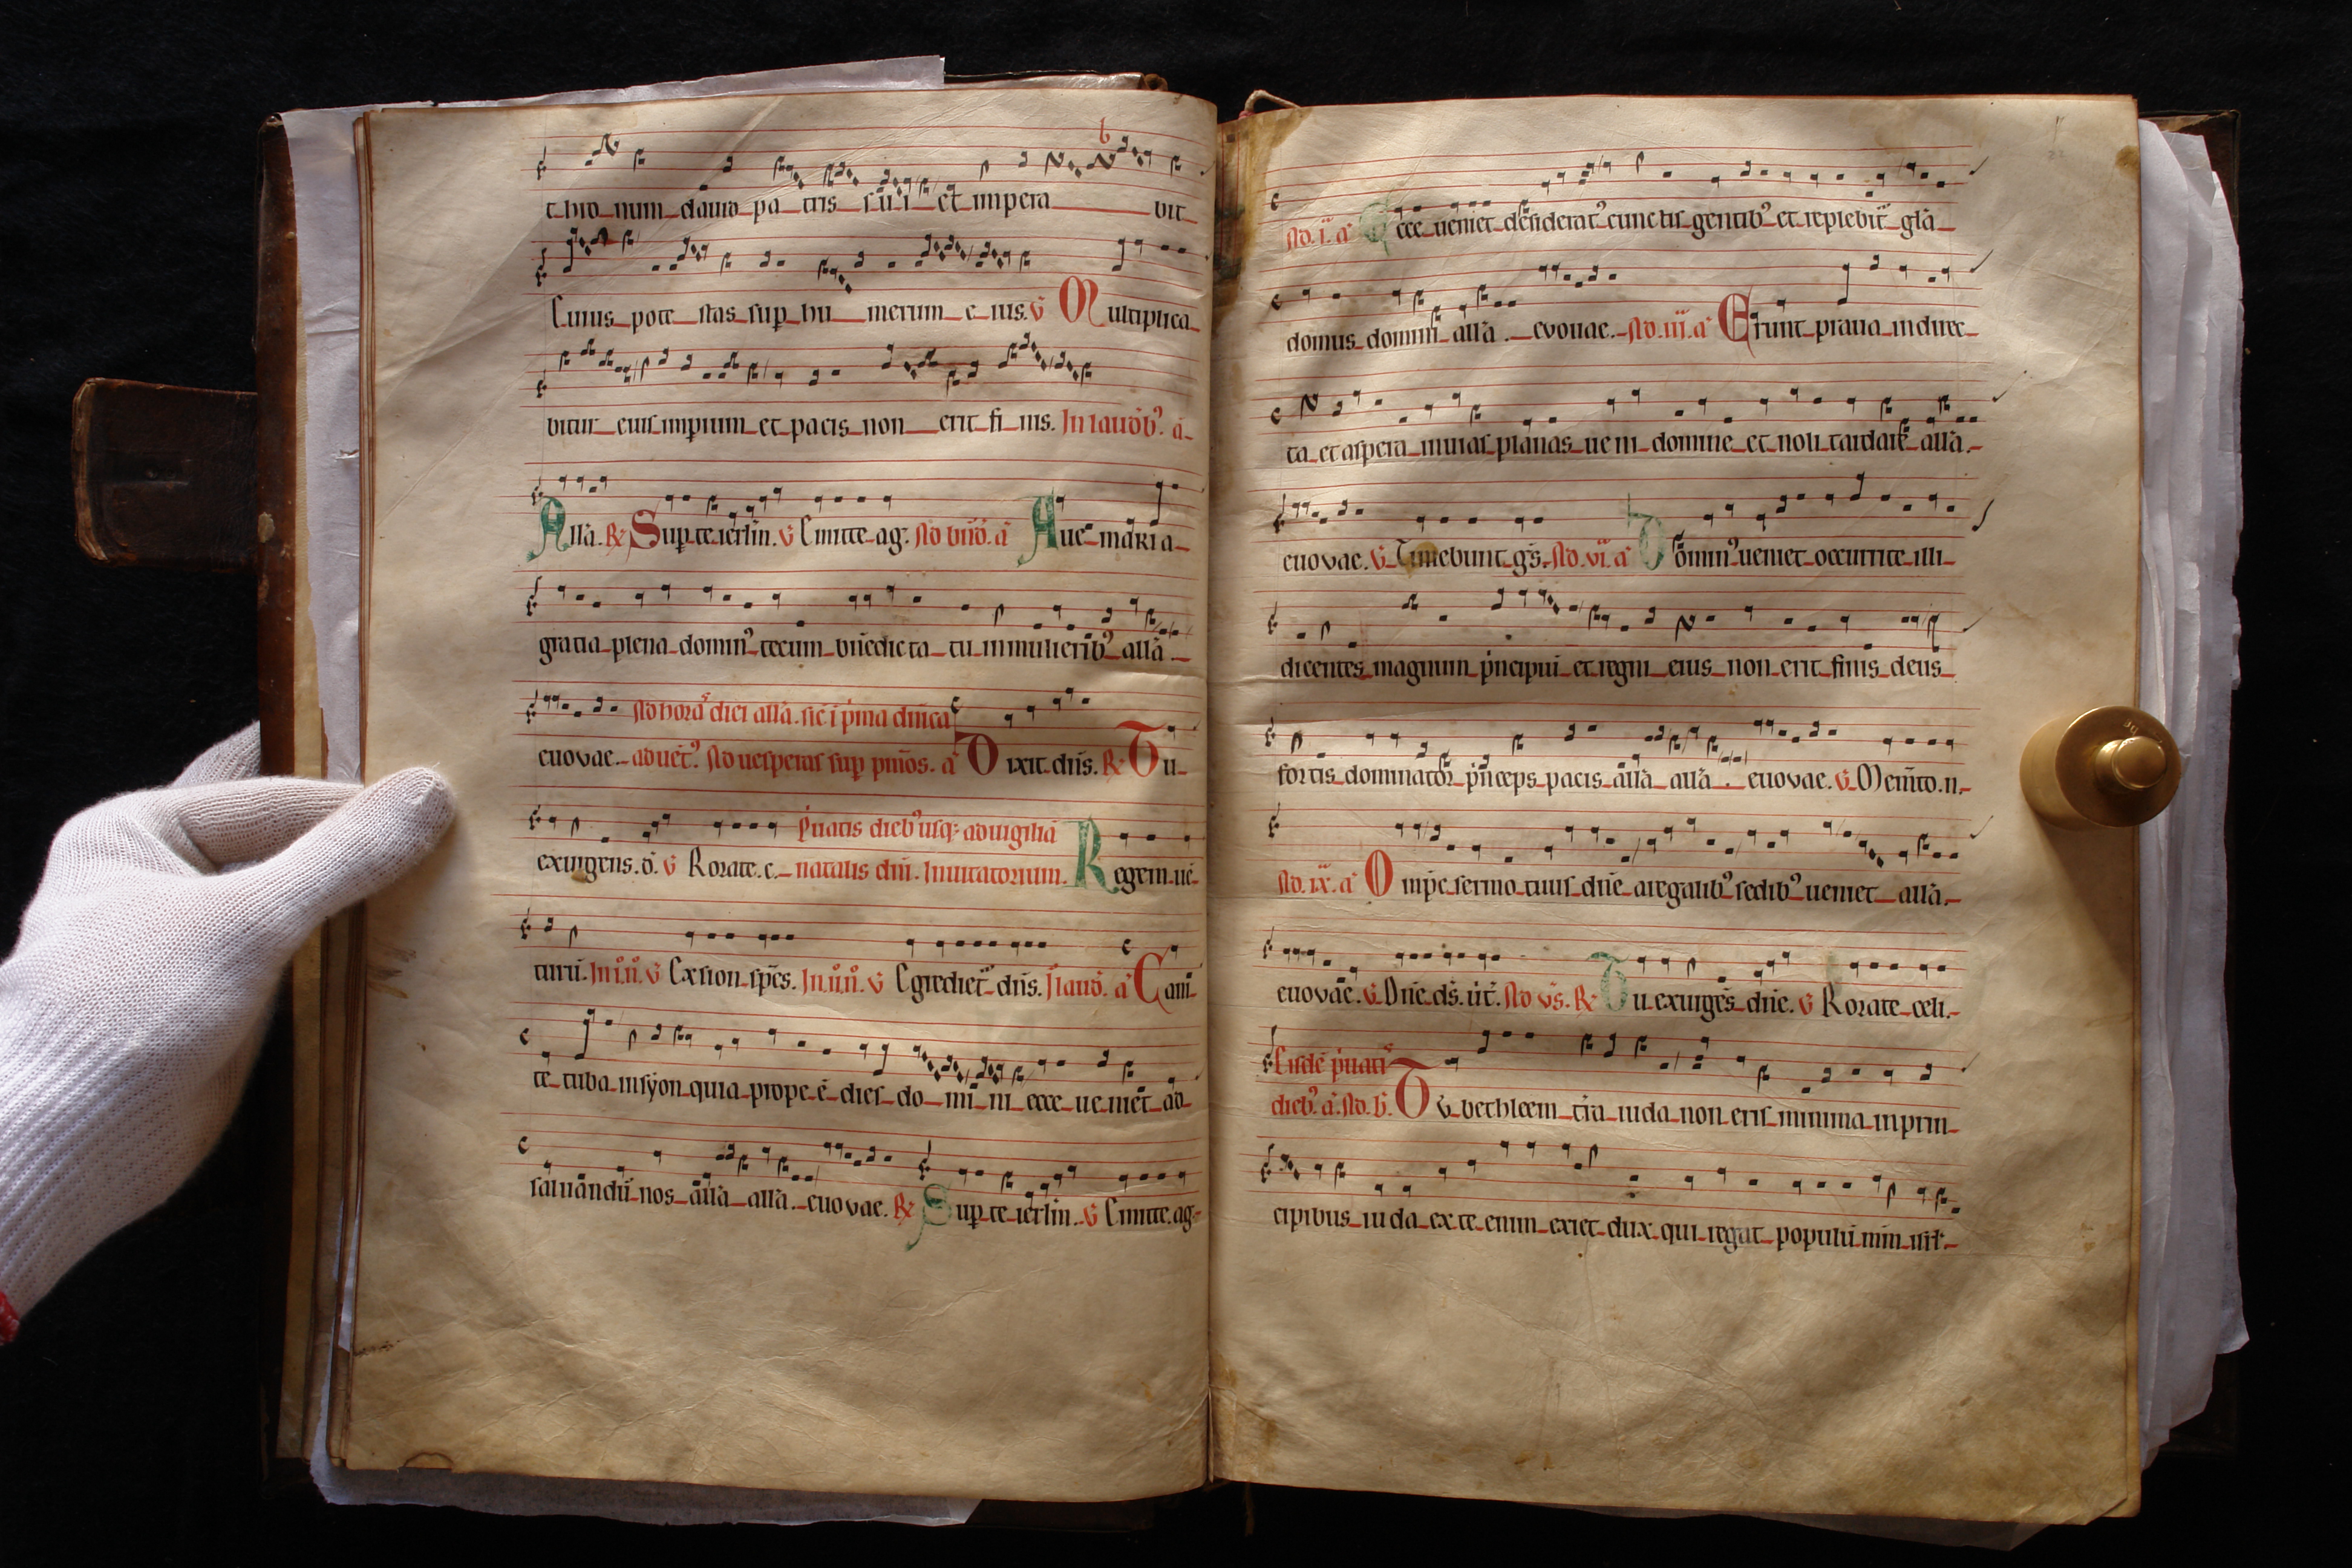 thro num dauid pa tris su i et impera bit
Cuius pote stas sup hu merum e ius. V Multiplica
bitur eius imperium et pacis non erit fi nis. In laudb9. a
Allā. R Sup te ierlm. V Emitte ag. Ad bnd. a Aue maria
gratia plena domin9 tecum bnedicta tu in mulierib9 allā
Ad horas dicī allā. sic ī pma dnica
euovae. aduēt9. Ad uesperas sup pmos. a Dixit dns. R Tu
Puatis dieb9 usq ad uigiliā
exurgens. d. V Rorate. c. natalis dnī. Inuitatorium. Regem uē
turū. V Ex sion spēs. V Egrediet dns. a Cani
te tuba in syon quia prope ē dies do mi ni ecce ue niet ad
saluandū nos allā allā. euovae. R Sup te ierlm. V Emitte ag
Ad. i. a Ecce ueniet desiderat9 cunctis gentib9 et replebit glā
domus domini allā. evouae. Ad. iii. a Erunt praua in direc
ta et aspera in uias planas ue ni domine et noli tardare allā.
euovae. V Timebunt gs. Ad. vi. a Domin9 ueniet occurrite illi
dicentes magnum pncipiū et regni eius non erit finis deus
fortis dominator pnceps pacis allā allā. euovae. V Memto. n.
Ad. ix. a Omps sermo tuus dne a regalib9 sedib9 ueniet allā.
euovae. V Dne. ds. Ad vs. R Tu exurges dne. V Rorate celi.
Eisdē puatis
dieb9. a. Ad. b. Tu bethleem tra iuda non eris minima in prin
cipibus iuda ex te enim exiet dux qui regat populū mm isrl.